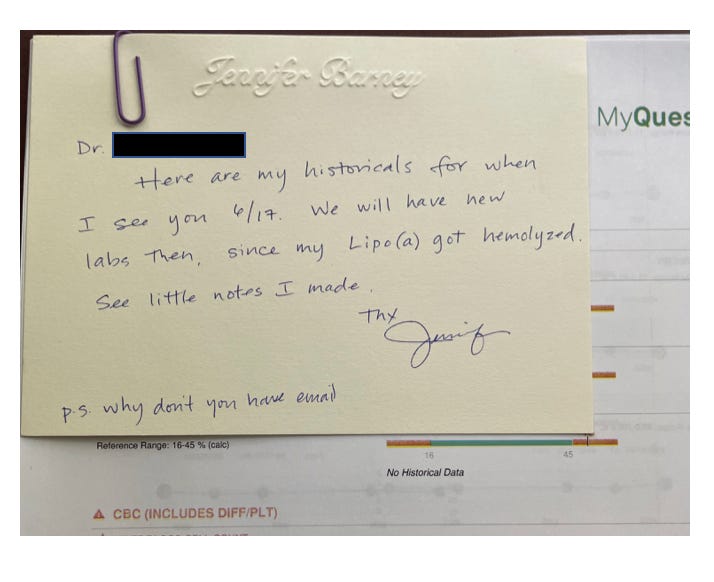 Jennifer Barney
MyQues
Dr.
Here are my historicals for when
I see you 6/17. We will have new
labs then, since my Lipo(a) got hemolyzed.
See little notes I made.
Thx
p.s. why don't you have email
Reference Range: 16-45 % (calc)
16 45
No Historical Data
CBC (INCLUDES DIFF/PLT)